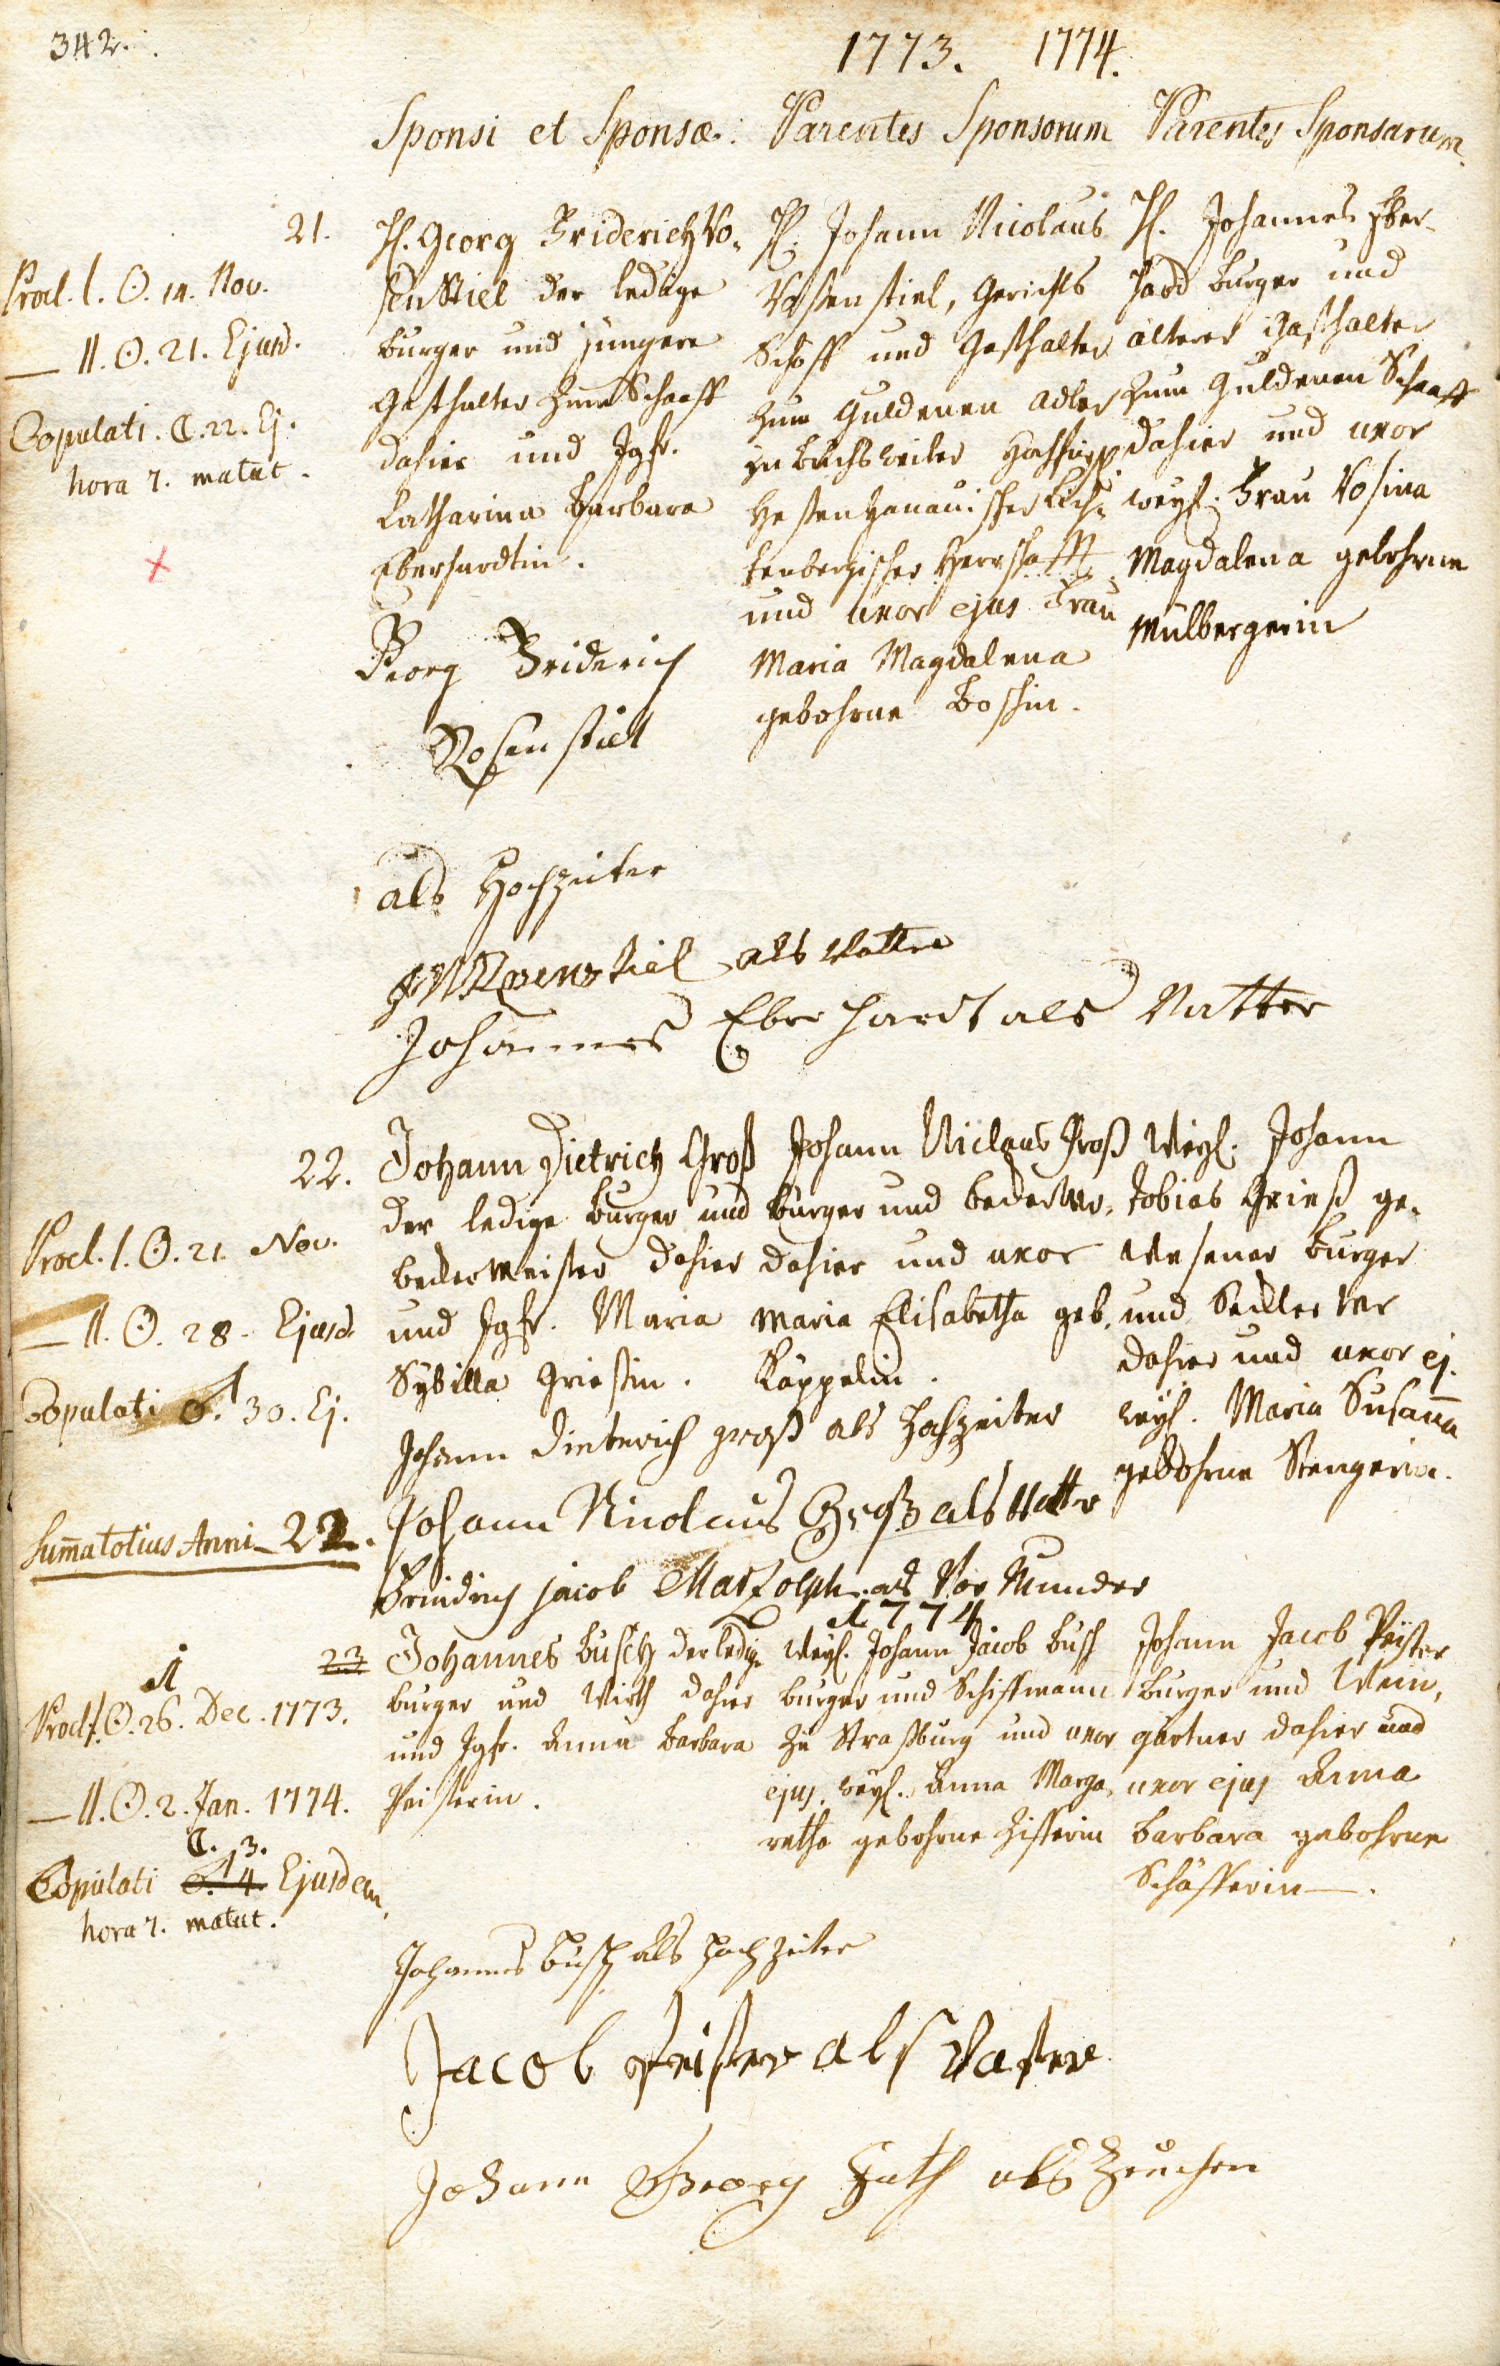 342.
1773. 1774.
Sponsi et Sponsæ. Parentes Sponsorum Parentes Sponsarum.
21.
Procl. I. ☉. 14. Nov.
— II. ☉. 21. Ejusd.
Copulati. ☾. 22. Ej.
hora 7. matut.
H. Georg Friderich Ro-
senstiel der ledige
burger und jüngere
Gasthalter zum Schaaff
dahier und Jgfr.
Catharina Barbara
Eberhardtin.
Georg Friderich
Rosenstiel
als Hochzeiter
H. Johann Nicolaus
Rosenstiel, Gerichts
Schöff und Gasthalter
zum Guldenen Adler
zu Buchsweiler Hochfürstl.
Hessenhanauischer Lich-
tenbergischer Herrschafft
und uxor ejus Frau
Maria Magdalena
gebohrne Boshin.
H. Johannes Eber-
hard burger und
älterer Gasthalter
zum Guldenen Schaaff
dahier und uxor
weyl. Frau Rosina
Magdalena gebohrne
Mülbergerin
JNRosenstiel als Vatter
Johannes Eberhardt als Vatter
22.
Procl. I. ☉. 21. Nov.
— II. ☉. 28. Ejusd.
Copulati ♂. 30. Ej.
Johann Dietrich Groß
der ledige Burger und
beckermeister dahier
und Jgfr. Maria
Sybilla Griesin.
Johann Niclaus Groß
burger und becker
dahier und uxor
Maria Elisabetha geb.
Käppelin.
Weyl. Johann
Tobias Grieß ge-
wesener burger
und Seiler
dahier und uxor ej.
weyl. Maria Susanna
gebohrne Stengerin.
Johann Dieterich groß als Hochzeiter
Johann Nicolaus Groß als Vatter
Friedrich Jacob Marzolph als Vormunder
Summa totius Anni – 22.
1774
1
23
Procl. I. ☉. 26. Dec. 1773.
— II. ☉. 2. Jan. 1774.
☾. 3.
Copulati ♂. 4. Ejusdem,
hora 7. matut.
Johannes Busch der ledige
burger und Wirth dahier
und Jgfr. Anna Barbara
Peisterin.
Weyl. Johann Jacob Busch
burger und Schiffmann
zu Straßburg und uxor
ejus, weyl. Anna Marga-
retha gebohrne Zisserin
Johann Jacob Peister
burger und Wein-
gärtner dahier und
uxor ejus Anna
Barbara gebohrne
Schäfferin —.
Johannes Busch als Hochzeiter
Jacob Peister als Vatter
Johann Georg als Zeuchen